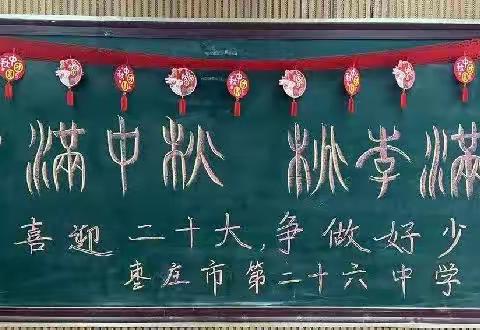 满中秋 桃李满
喜迎二十大,争做好少
枣庄市第二十六中学